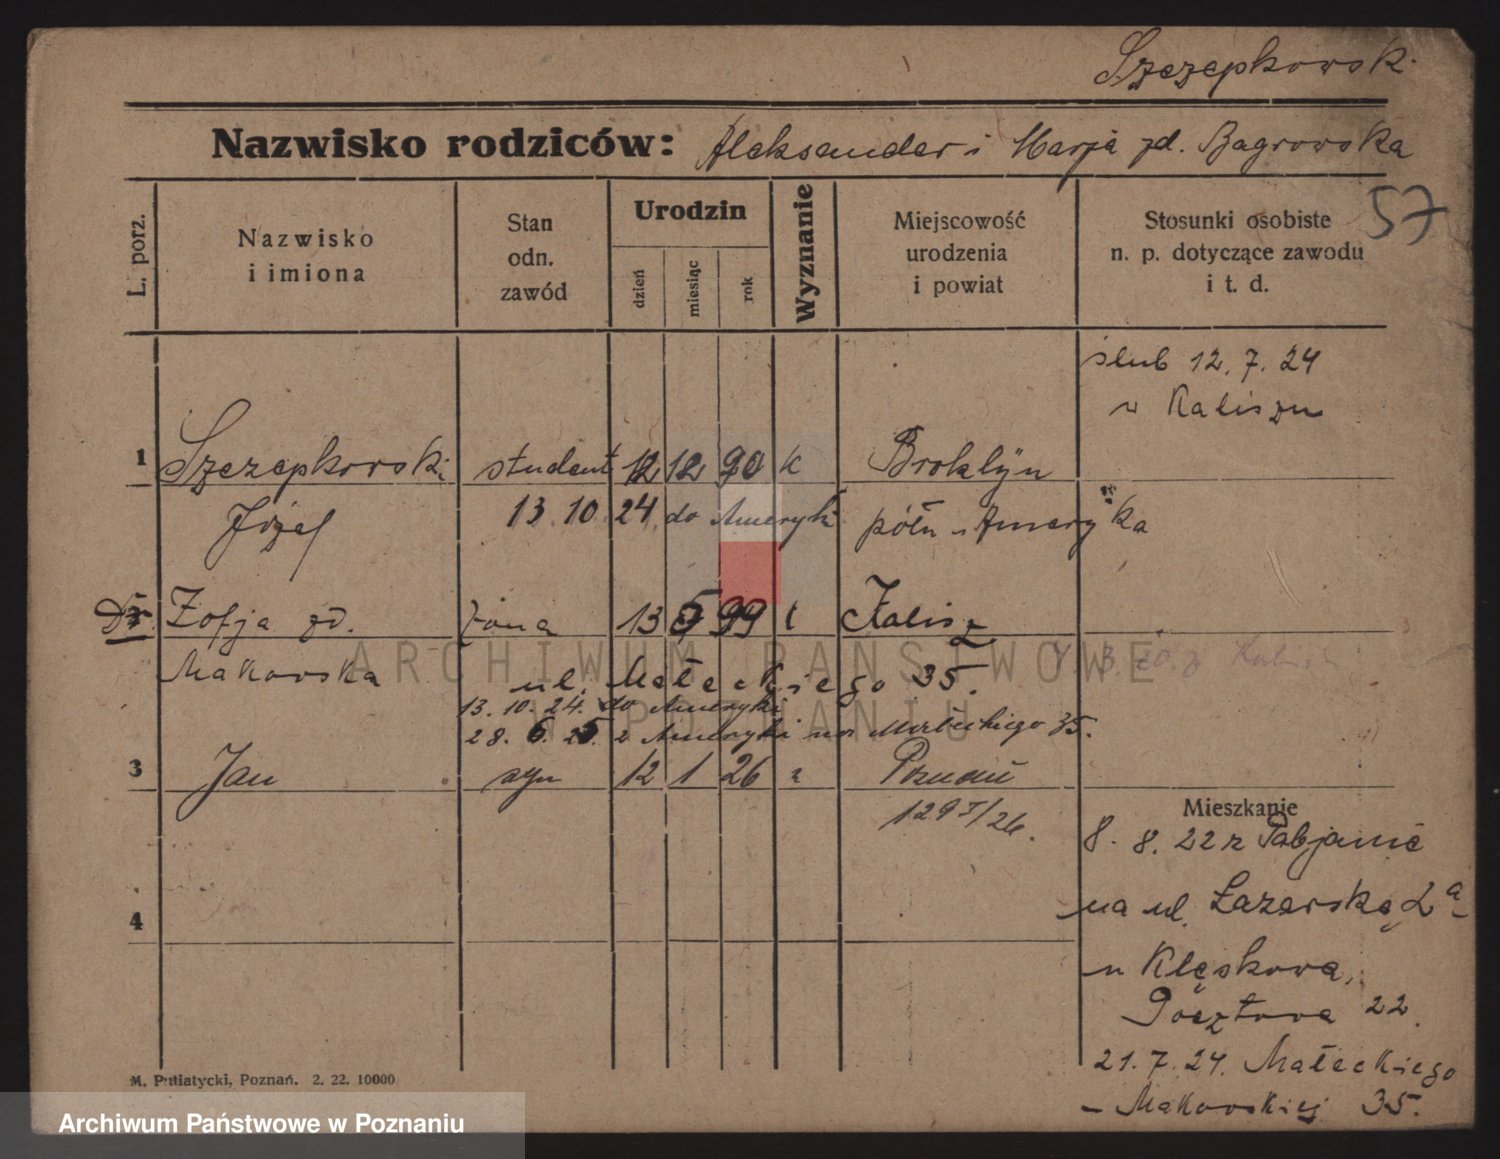 Szczepkowsk
Nazwisko rodziców: Aleksander i Marja zd. Bagrowska
57
L. porz.
Nazwisko
i imiona
Stan
odn.
zawód
Urodzin
dzień
miesiąc
rok
Wyznanie
Miejscowość
urodzenia
i powiat
Stosunki osobiste
n. p. dotyczące zawodu
i t. d.
ślub 12. 7. 24
w Kaliszu
1 Szczepkowski student 12 12 90 k Broklÿn
Józef 13. 10. 24 do Ameryki półn. Ameryka
Zofja zd. żona 13 5 99 Kalisz
Makowska ul. Małeckiego 35.
13. 10. 24. do Ameryki
28. 6. 25. z Ameryki na Małeckiego 35.
3 Jan syn 12 1 26 Poznań
1295/26.
4
Mieszkanie
8. 8. 22 z Pabjanic
na ul. Łazarską 2a
u Klęskowa,
Pocztowa 22.
21. 7. 24. Małeckiego
- Makowskiej 35.
M. Putiatycki, Poznań. 2. 22. 10000
ARCHIWUM PAŃSTWOWE
W POZNANIU
Archiwum Państwowe w Poznaniu